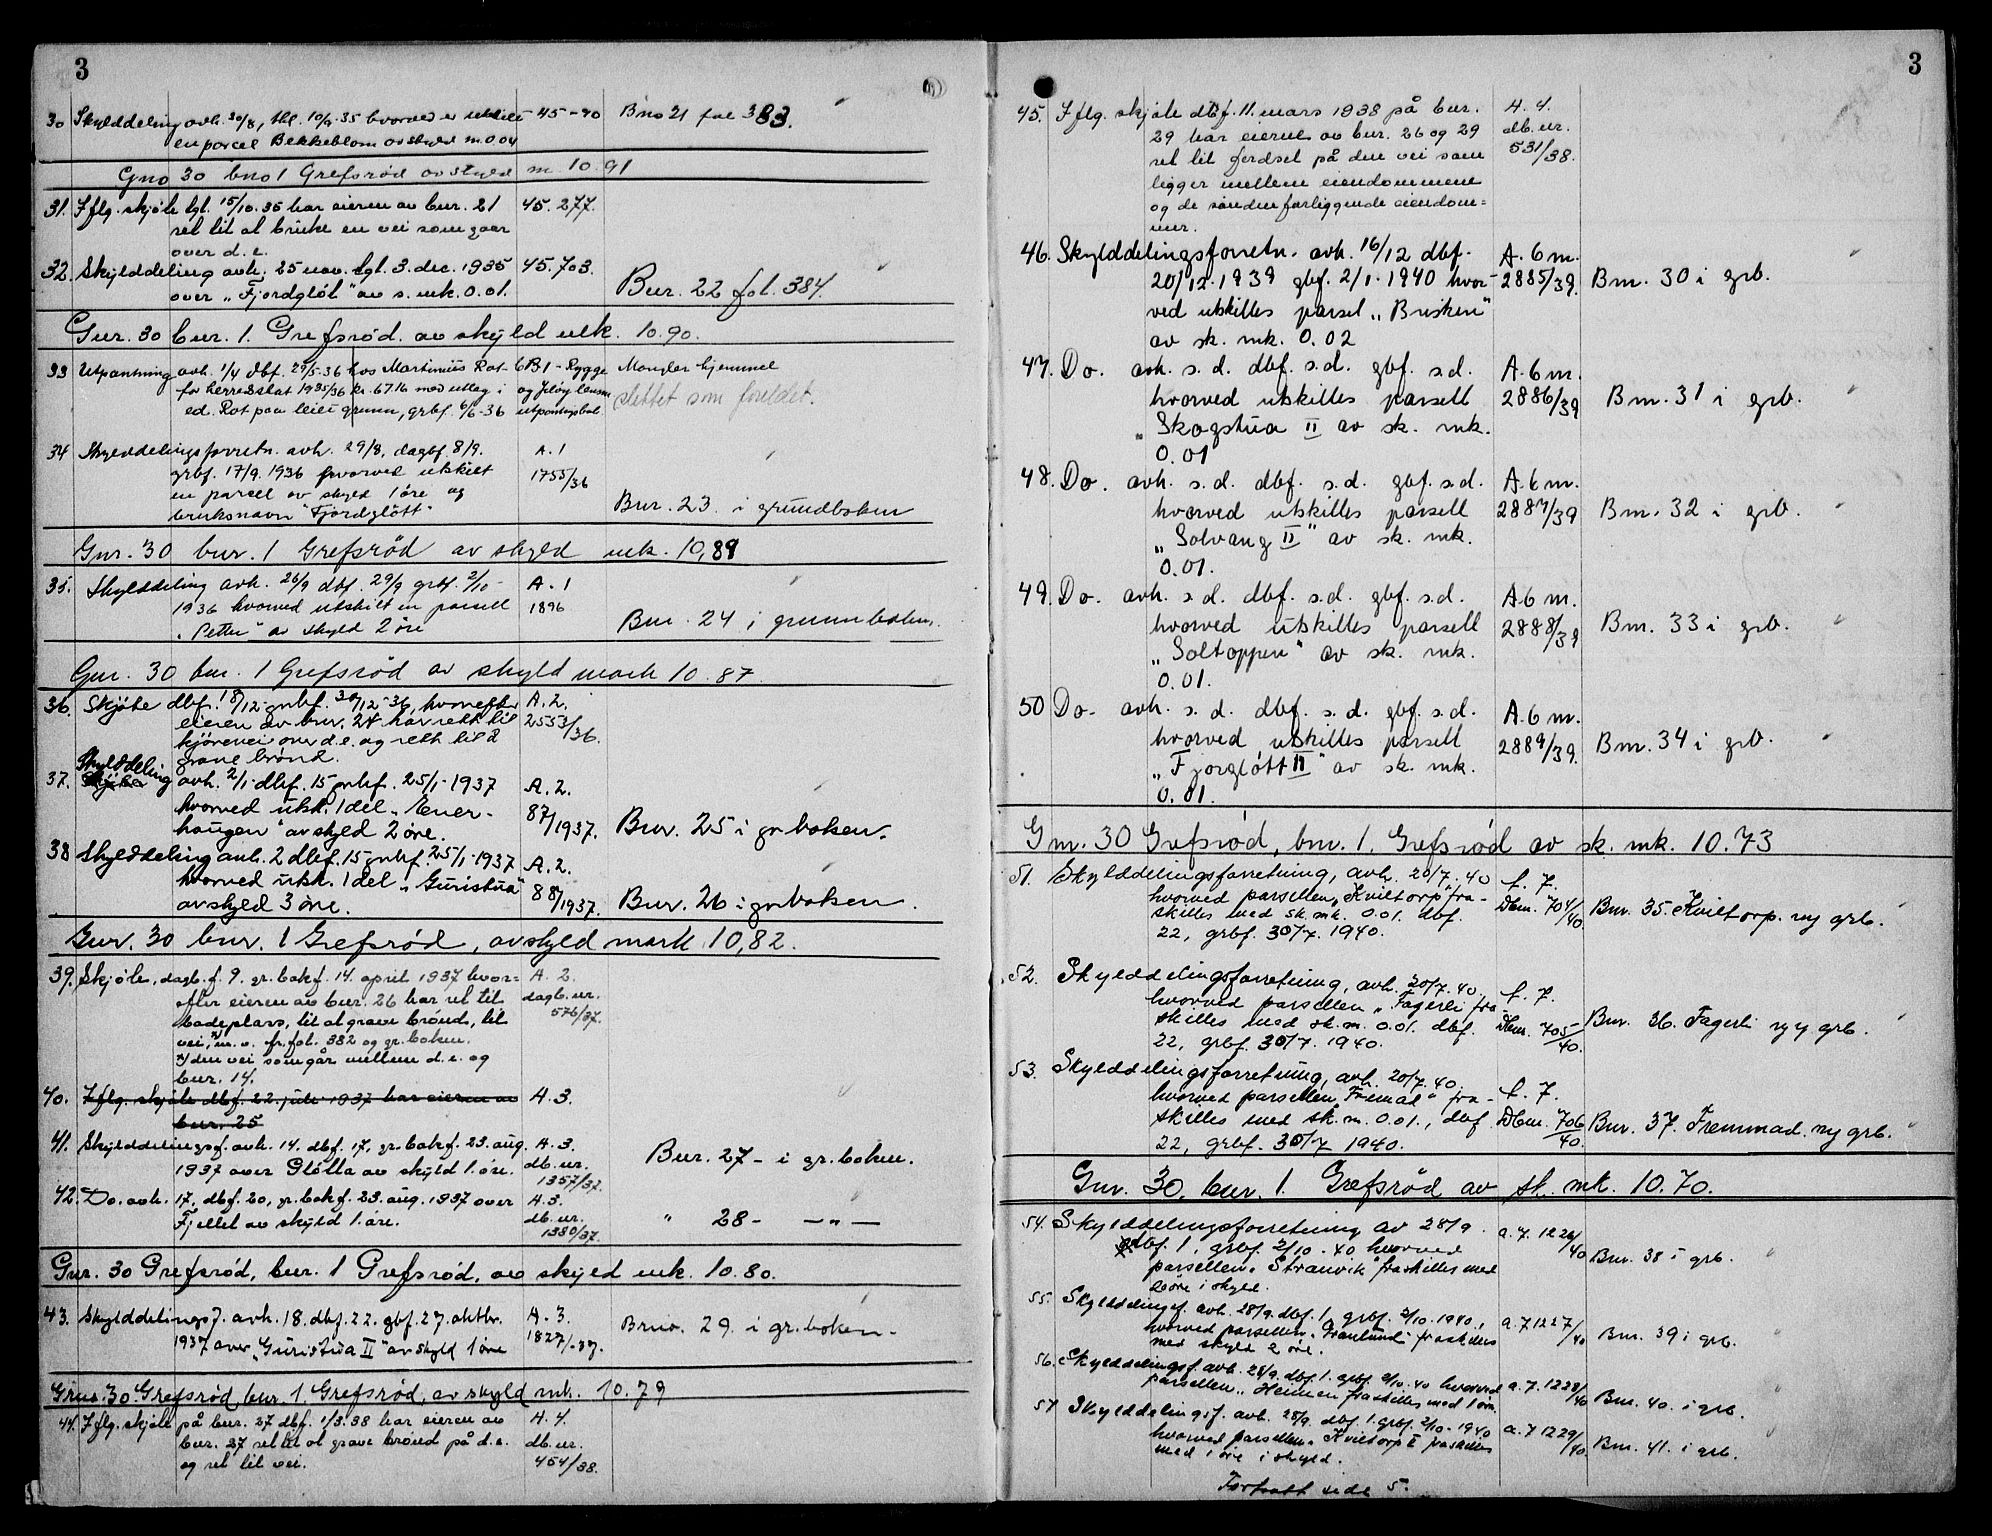 3
30 Skylddeling avh. 30/8, thl. 10/9-35 hvorved er utskilt - 45-90 Bno 21 fol 383.
en parcel Bekkeblom av skyld m 0 04
Gno 30 bno 1 Grefsrød av skyld m 10.91
31. Iflg. skjøte tgl. 15/10.35 har eieren av bnr. 21 45.277.
ret til at bruke en vei som gaar
over d. e.
32. Skylddeling avh. 25 nov. tgl. 3. dec. 1935 45.703.
over "Fjordgløt" av s. mk. 0.01. Bnr. 22 fol. 384.
Gnr. 30 bnr. 1. Grefsrød. av skyld mk. 10.90.
33 Utpantning avh. 1/4 dbf. 29/5-36 hos Martinius Rot 6B1 - Rygge Mangler hjemmel
for herredsskat 1935/36 kr. 67.16 med utlæg i og Jeløy lensm slettet som foreldet.
ed. Rot paa leiet grunn, grbf. 6/6-36 utpantngsbok.
34 Skylddelingsforretn. avh. 29/8, dagbf. 8/9. A. 1
grbf. 17/9. 1936 hvorved utskilt 1755/36
en parcel av skyld 1 øre og
bruksnavn "Fjordgløtt" Bnr. 23. i grundboken
Gnr. 30 bnr. 1 Grefsrød av skyld mk. 10,89
35. Skylddeling avh. 26/9 dbf. 29/9 grbf. 2/10- A. 1
1936 hvorved utskilt en parsell 1896
"Petter" av skyld 2 øre Bnr. 24 i grunnboken.
Gnr. 30 bnr. 1 Grefsrød av skyld mark 10.87.
36. Skjøte dbf. 18/12 grbf. 30/12-36, hvorefter A. 2.
eieren av bnr. 24 har rett til 2553/36.
kjørevei over d.e. og rett til å
grave brønd.
Skylddeling
37. Skjøte avh. 2/1 dbf. 15 grbf. 25/1-1937 A. 2.
hvorved utsk. 1 del "Ener- 87/1937. Bnr. 25 i gr boken.
haugen" av skyld 2 øre.
38 Skylddeling avh. 2 dbf. 15 grbf. 25/1-1937 A. 2.
hvorved utsk. 1 del "Guristua" 88/1937. Bnr. 26 i gr boken.
av skyld 3 øre.
Gnr. 30 bnr. 1 Grefsrød, av skyld mark 10,82.
39. Skjøte, dagb.f. 9. gr. bok f. 14. april 1937 hvor- A. 2.
efter eieren av bnr. 26 har ret til dagb. nr.
badeplass, til at grave brønd, til 576/37.
vei, x) m. v. fr. fol. 382 og gr. boken.
x) den vei som går mellem d. e. og
bnr. 14.
40. Iflg. skjøte dbf. 22. juli 1937 har eieren av A. 3.
bnr. 25
41. Skylddelingsf. avh. 14. dbf. 17, gr. bok f. 23. aug. A. 3.
1937 over Sløtta av skyld 1. øre. db. nr. Bnr. 27 - i gr. boken.
1357/37.
42. Do. avh. 17, dbf. 20, gr. bok f. 23. aug. 1937 over A. 3.
Fjellet av skyld 1. øre. db. nr. " 28 - — " —
1380/37.
Gnr. 30 Grefsrød, bnr. 1 Grefsrød, av skyld mk. 10.80.
43. Skylddelingsf. avh. 18. dbf. 22. gbf. 27. oktbr. A. 3.
1937 over "Guristua II" av skyld 1 øre 1827/-37. Brno. 29. i gr. boken -
Gnr. 30. Grefsrød, bnr. 1. Grefsrød, av skyld mk. 10.79
44. Iflg. skjøte på bnr. 27 dbf. 1/3.38 har eieren av A. 4.
bnr. 27 ret til at grave brønd på d. e. db. nr.
og ret til vei. 454/38.
3
45. Iflg. skjøte dbf. 11. mars 1938 på bnr. A. 4.
29 har eierne av bnr. 26 og 29 db. nr.
ret til ferdsel på den vei som 531/38.
ligger mellem eiendommene
og de sønden forliggende eiendom-
mer.
46. Skylddelingsforretn. avh. 16/12 dbf. A. 6 m.
20/12.1939 gbf. 2/1.1940 hvor- 2885/39. Bnr. 30 i grb.
ved utskilles parsel "Brisken"
av sk. mk. 0.02
47. Do. avh. s. d. dbf. s.d. gbf. s.d. A. 6 m.
hvorved utskilles parsell 2886/39 Bnr. 31 i grb.
"Skogstua II av sk. mk.
0.01
48. Do. avh. s. d. dbf. s.d. gbf. s.d. A. 6 m.
hvorved utskilles parsell 2887/39 Bnr. 32 i grb.
"Solvang II" av sk. mk.
0.01.
49. Do. avh. s. d. dbf. s.d. gbf. s.d. A. 6 m.
hvorved utskilles parsell 2888/39 Bnr. 33 i grb.
"Soltoppen" av sk. mk.
0.01.
50 Do. avh. s. d. dbf. s. d. gbf. s.d. A. 6 m.
hvorved utskilles parsell 2889/39. Bnr. 34 i grb.
"Fjorgløtt II" av sk. mk.
0.01.
Gnr. 30 Grefsrød, bnr. 1. Grefsrød av sk. mk. 10.73
51. Skylddelingsforretning, avh. 20/7. 40 A. 7.
hvorved parsellen "Kvieltorp" fra- Dbnr. 704/40. Bnr. 35. Kvieltorp. ny grb.
skilles med sk. mk. 0.01. dbf.
22, grbf. 30/7. 1940.
52. Skylddelingsforretning, avh. 20/7. 40. A. 7.
hvorved parsellen "Fagerli" fra- Dbnr. 705/40. Bnr. 36. Fagerli ny grb.
skilles med sk. m. 0.01. dbf.
22, grbf. 30/7. 1940.
53. Skylddelingsforretning, avh. 20/7. 40. A. 7.
hvorved parsellen "Fremad" fra-
skilles med sk. m. 0.01., dbf Dbnr. 706/40. Bnr. 37. Fremmad. ny grb.
22, grbf. 30/7 1940.
Gnr. 30. bnr. 1. Grefsrød av sk. mk. 10.70.
54. Skylddelingsforretning av 28/9. a. 7. 1226/40
dbf. 1, grbf. 2/10-40 hvorved Bnr. 38 i grb.
parsellen "Stranvik" fraskilles med
2 øre i skyld.
55. Skylddelingsf. avh. 28/9. dbf. 1, grbf. 2/10. 1940, a. 7 1227/40
hvorved parsellen "Granlund" fraskilles Bnr. 39 i grb.
med skyld 2 øre.
56. Skylddelingsf. avh. 28/9. dbf. 1. grbf. 2/10. 40 hvorved a. 7. 1228/40 Bnr. 40. i grb.
parsellen "Heimen fraskilles med 1 øre.
57 Skylddelingsf. avh. 28/9. dbf. 1. grbf. 2/10-1940 a. 7 1229/40.
hvorved parsellen "Kvieltorp II fraskilles Bnr. 41. i grb.
med 1 øre i skyld.
Fortsatt side 5.